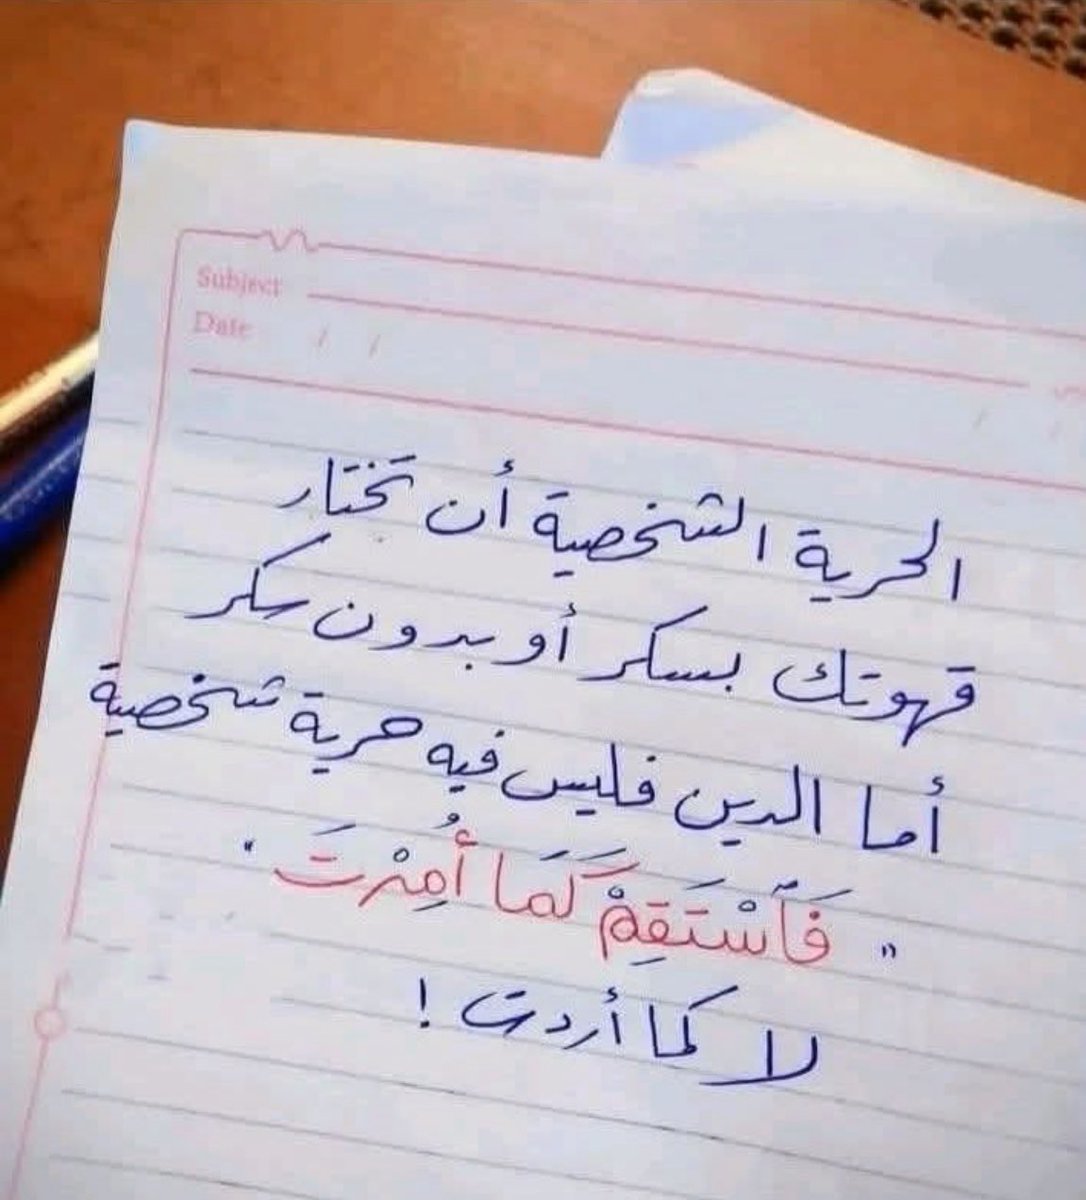 Subject
Date / /
الحرية الشخصية أن تختار
قهوتك بسكر أو بدون سكر
أما الدين فليس فيه حرية شخصية
" فَٱسْتَقِمْ كَمَا أُمِرْتَ "
لا كما أردت !